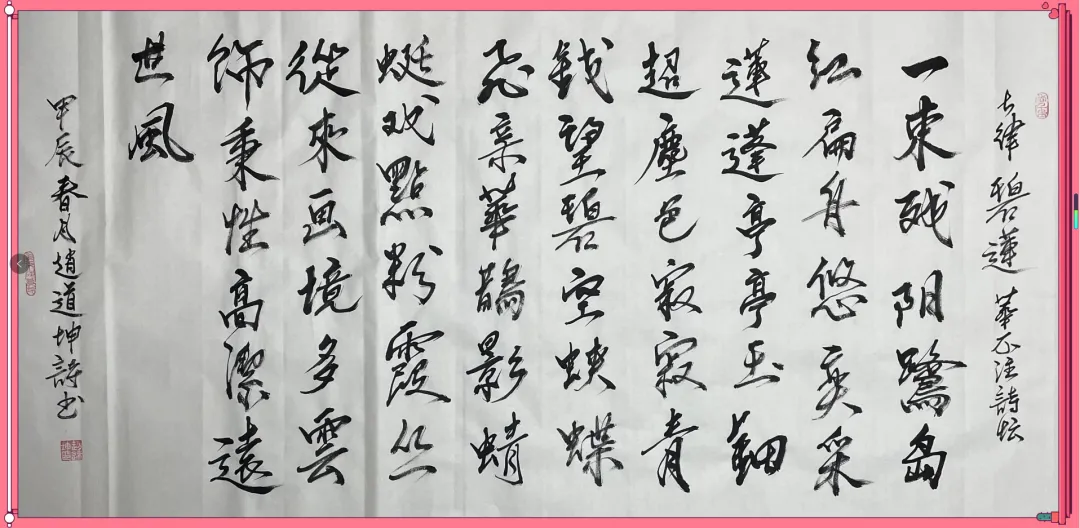 七律 碧蓮 華不注詩坛
一束残阳鷺島
红扁舟悠奕采
蓮蓬亭亭玉鈿
超塵色寂寂青
錢望碧空蛱蝶
飛亲華鵲影蜻
蜓戏點粉霞丛
從來画境多雲
飾秉性高潔遠
世風
甲辰春月趙道坤詩书